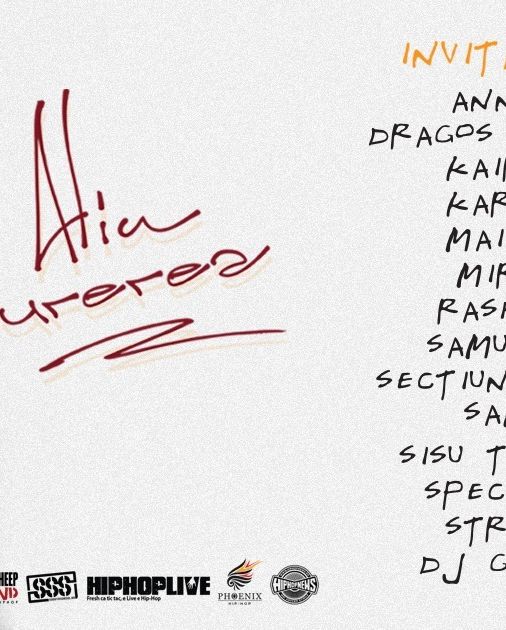 Alin
urerea
INVIT
ANN
DRAGOS
KAI
KAR
MAI
MIR
RAS
SAMU
SECTIUN
SA
SISU T
SPEC
STR
DJ G
HEEP
ND
SSS
HIPHOPLIVE
Fresh ca tic tac, e Live e Hip-Hop
PHOENIX
HIP-HOP
HIPHOPNEWS